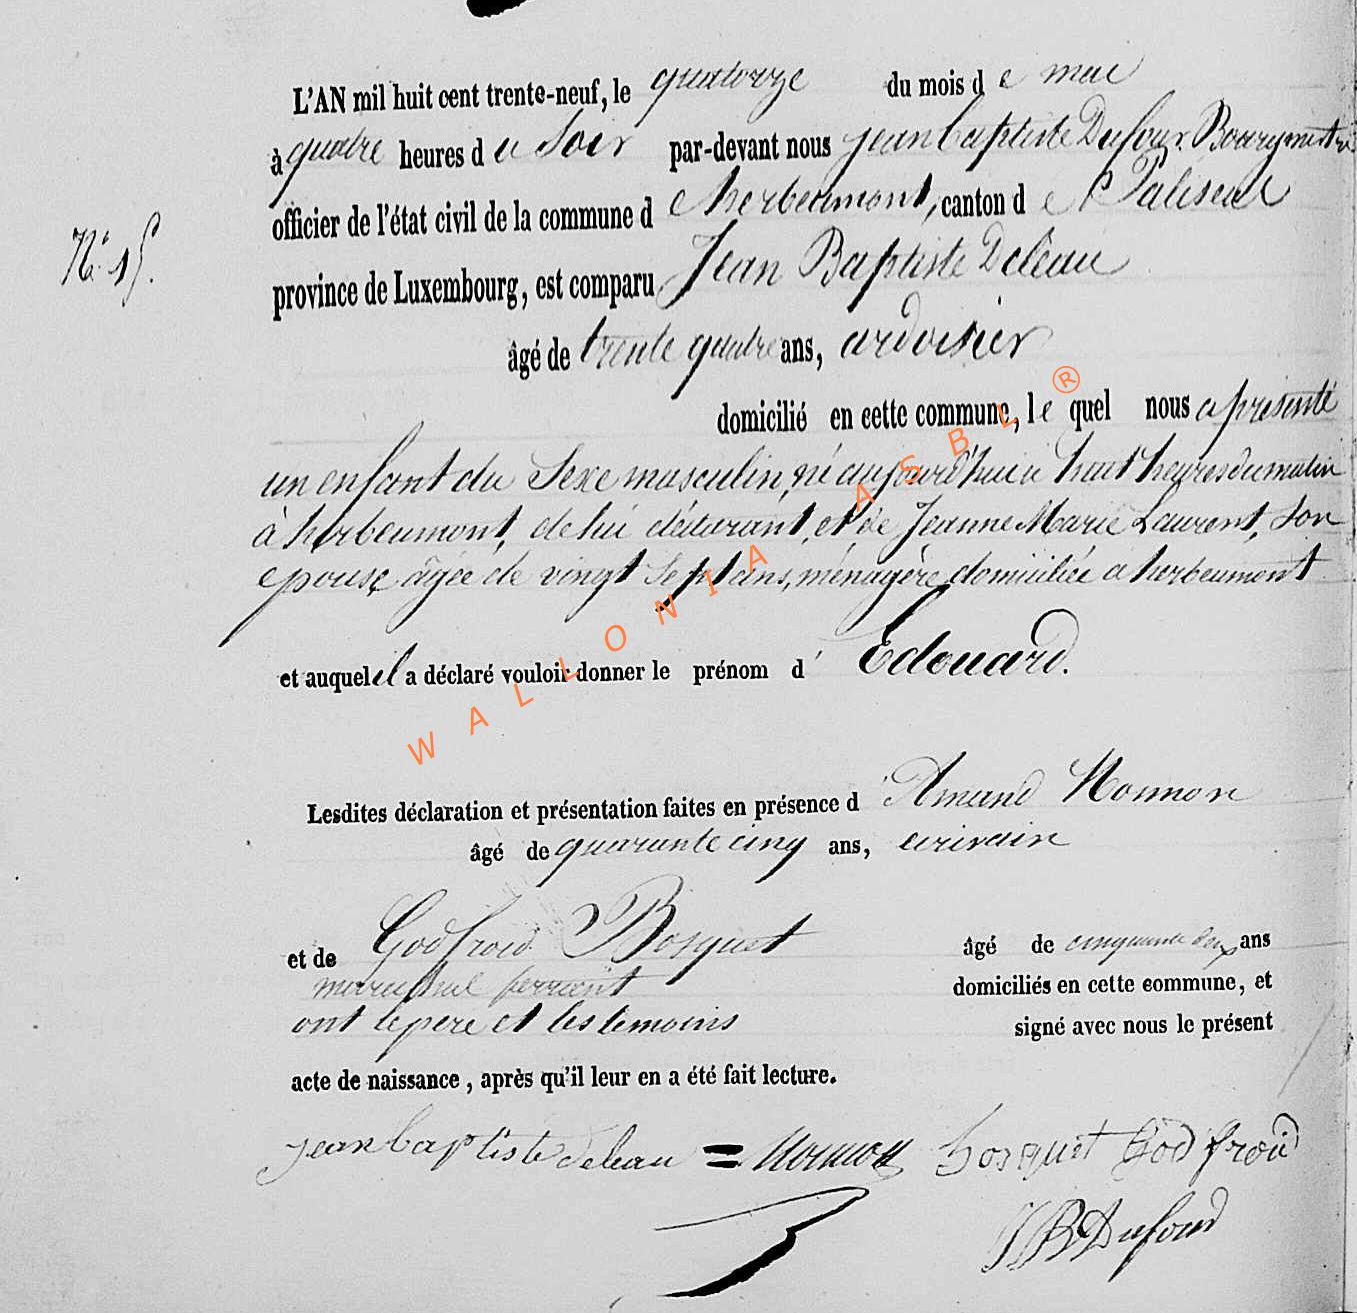 L'AN mil huit cent trente-neuf, le quatorze du mois d e mai
à quatre heures d u Soir par-devant nous jean baptiste Dufour Bourgmestre
officier de l'état civil de la commune d e herbeumont, canton d e Paliseul
N° 15.
province de Luxembourg, est comparu Jean Baptiste Deleau
âgé de trente quatre ans, ardoisier
domicilié en cette commune, le quel nous a présenté
un enfant du Sexe masculin, né aujourd'hui à huit heures du matin
à herbeumont, de lui déclarant, et de Jeanne Marie Laurent, Son
epouse, âgée de vingt Sept ans, ménagère domiciliée à herbeumont
et auquel il a déclaré vouloir donner le prénom d' Edouard.
WALLONIA ASBL ®
Lesdites déclaration et présentation faites en présence d' Amand Monnon
âgé de quarante cinq ans, ecrivain
et de Godfroid Bosquet âgé de cinquante deux ans
marechal ferrant domiciliés en cette commune, et
ont le pere et les temoins signé avec nous le présent
acte de naissance, après qu'il leur en a été fait lecture.
jean baptiste deleau = Monnon bosquet God froid
JB Dufour